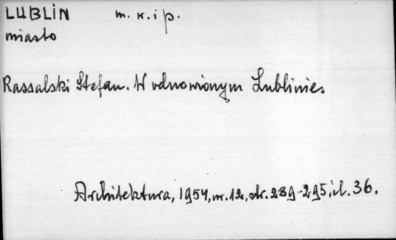 LUBLIN m. n. i p.
miasto
Rassalski Stefan. W odnowionym Lublinie.
Architektura, 1954, nr. 12, str. 289-295, il. 36.